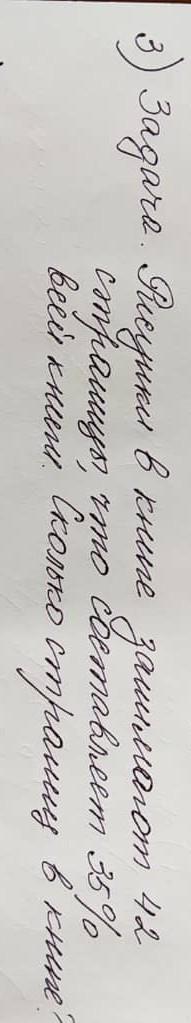 3) Задача. Рисунки в книге занимают 42
страницы, что составляет 35%
всей книги. Сколько страниц в книге?